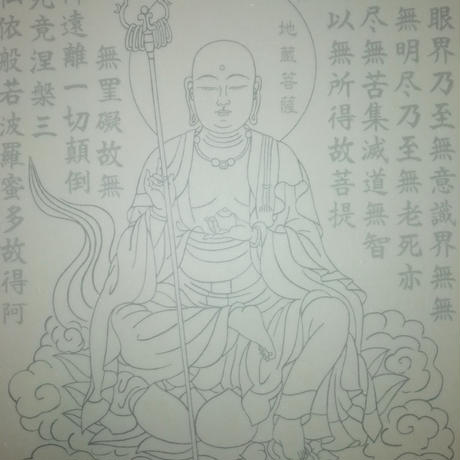 眼界乃至無意識界無無
無明尽乃至無老死亦
尽無苦集滅道無智
以無所得故菩提
地蔵菩薩
無罣礙故無
遠離一切顛倒
究竟涅槃三
依般若波羅蜜多故得阿